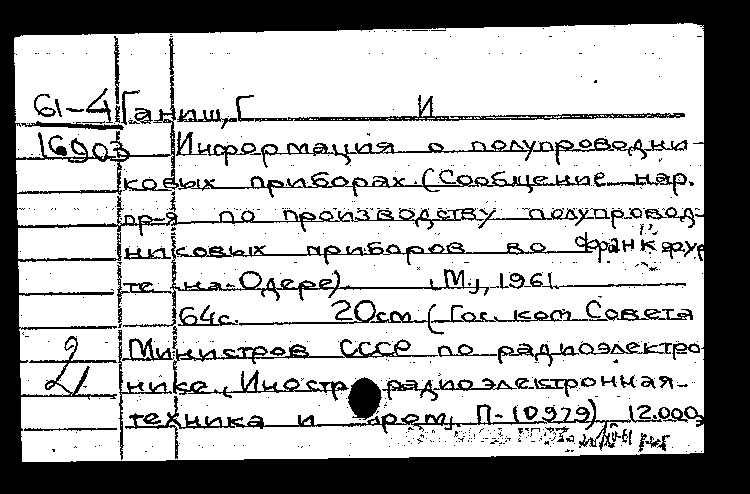 61-4 Ганиш, Г И
16903 Информация о полупроводни-
ковых приборах. (Сообщение нар.
пр-я по производству полупровод-
никовых приборов во Франкфур
те на-Одере). [М.], 1961
64с. 20см. (Гос. ком. Совета
Министров СССР по радиоэлектро
2 нике. Иностр радиоэлектронная
техника и пром. П-(0979) 12.000